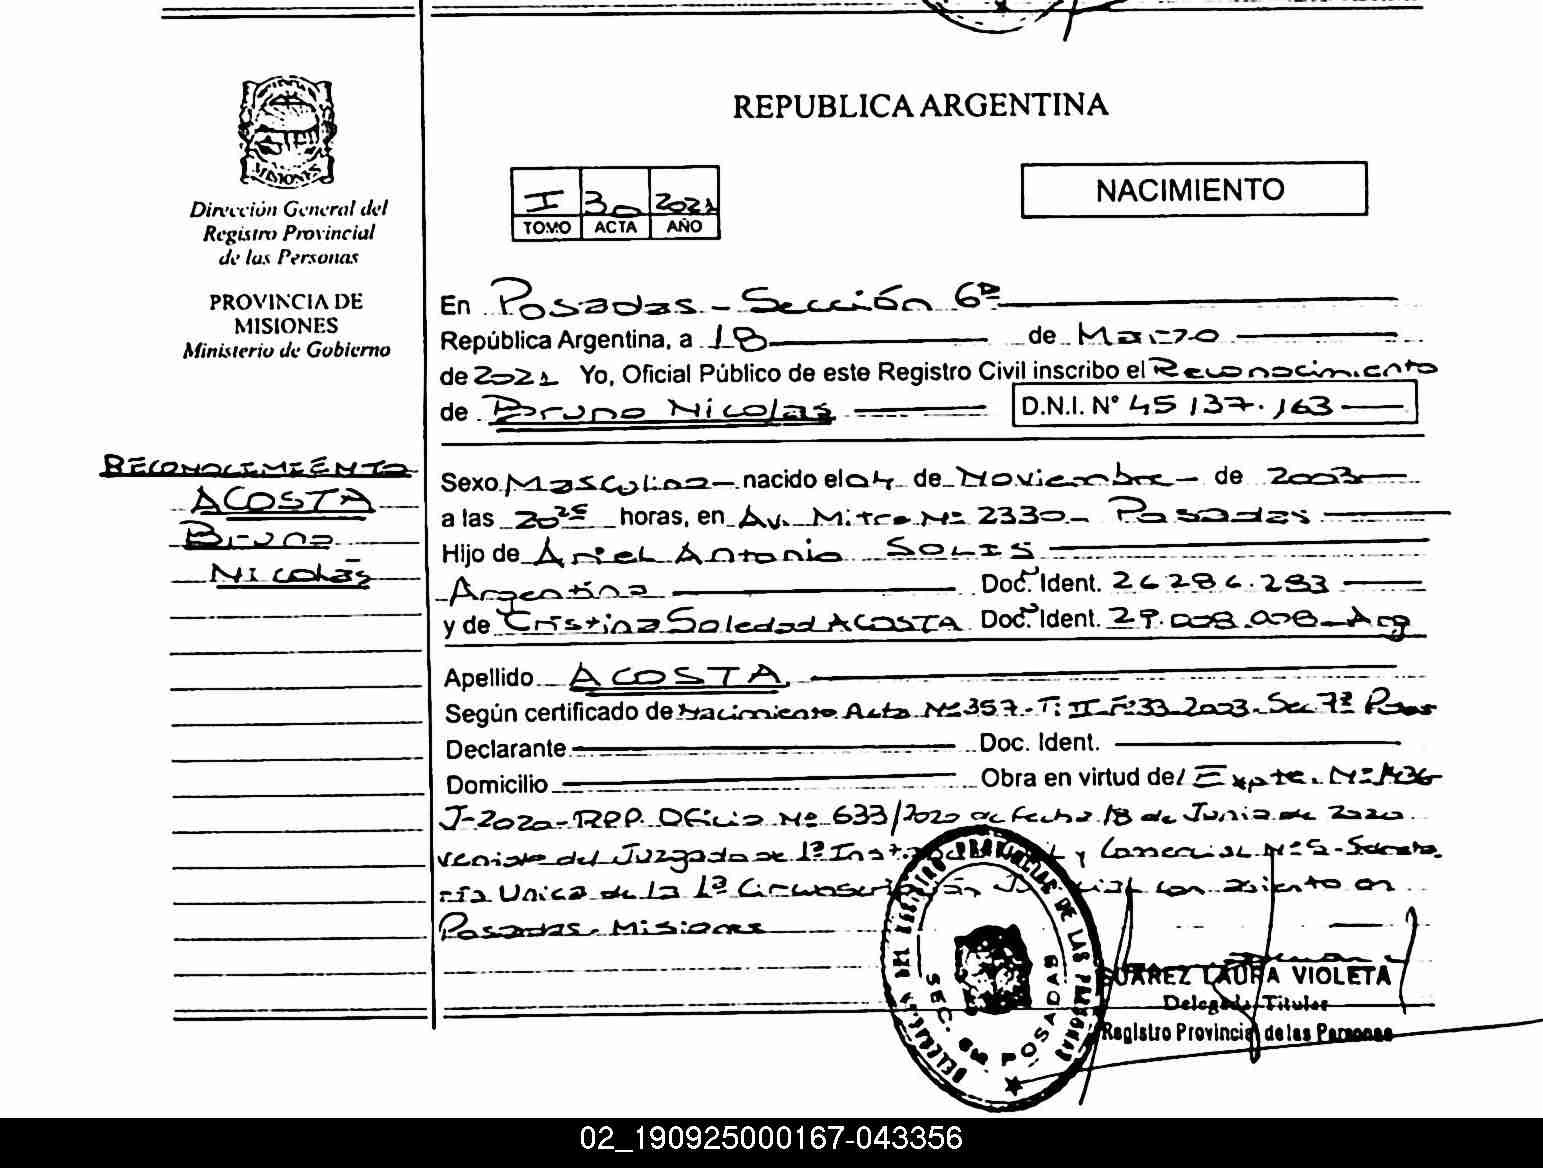 REPUBLICA ARGENTINA
MISIONES
Dirección General del
Registro Provincial
de las Personas
PROVINCIA DE
MISIONES
Ministerio de Gobierno
I 30 2021
TOMO ACTA AÑO
NACIMIENTO
En Posadas - Sección 6ª
República Argentina, a 18 de Marzo
de 2021 Yo, Oficial Público de este Registro Civil inscribo el Reconocimiento
de Bruno Nicolas D.N.I. N° 45 137.163
RECONOCIMIENTO
ACOSTA
Bruno
Nicolás
Sexo Masculino nacido el 04 de Noviembre de 2003
a las 20²⁵ horas, en Av. Mitre Nº 2330 - Posadas
Hijo de Ariel Antonio SOLIS
Argentina Doc. Ident. 26.286.283
y de Cristina Soledad ACOSTA Doc. Ident. 29.008.008 - Arg
Apellido ACOSTA
Según certificado de Nacimiento Acta Nº 357 - T: II F: 33 2003 - Sec 7ª Posadas
Declarante Doc. Ident.
Domicilio Obra en virtud del Expte. Nº
J-2020-RPP Oficio Nº 633/2020 de fecha 18 de Junio de 2020
veniste del Juzgado de 1ª y Comercial Nº 5 - Secreta
ría Unica de la 1ª Circunscripción Judicial con asiento en
Posadas - Misiones
DELEGACION DEL REGISTRO PROVINCIAL DE LAS PERSONAS
SEC. 6ª POSADAS
SUAREZ LAURA VIOLETA
Delegada Titular
Registro Provincial de las Personas
02_190925000167-043356